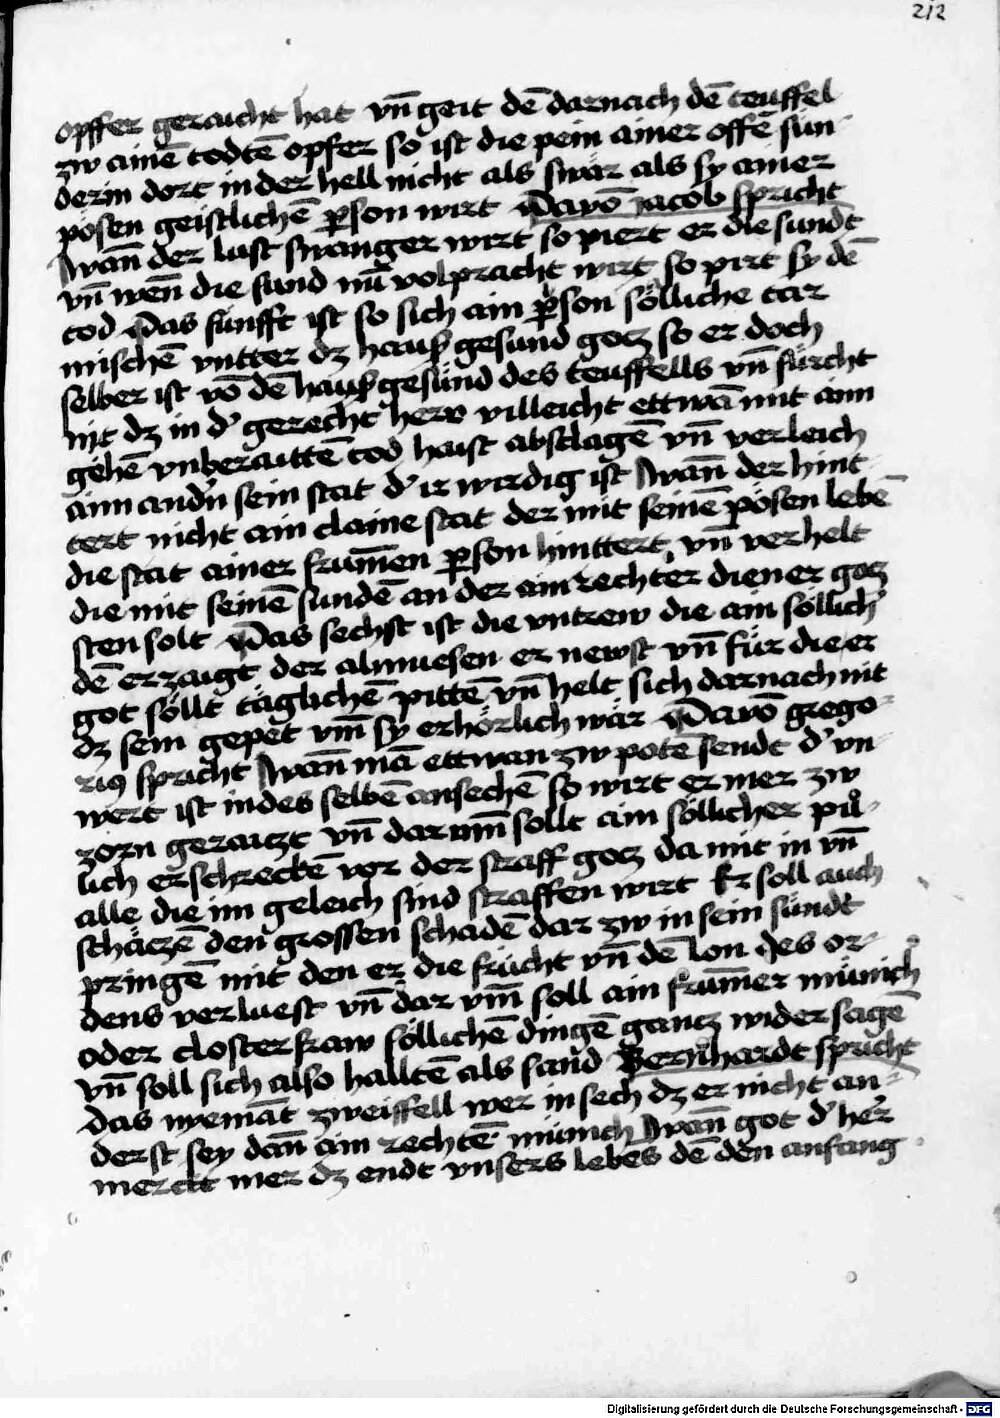 212
opffer geraicht hat vn̄ geit dē darnach dē teuffel
zw ainē todtē opfer so ist die pein ainer offē sun
derin dort in der hell nicht als swär als sy ainer
pösen geistlichē ꝑson wirt Davō Jacob spricht
Wan̄ der lust swanger wirt so piert er die sundt
vn̄ wen̄ die sund nū volpracht wirt so pirt sy dē
tod Das fünfft ist so sich ain ꝑson sölliche tar
mischē vntter dz hauß gesund gotz so er doch
selber ist vō dē hauß gesünd des teuffells vn̄ fürcht
nit dz in d' gerecht herr villeicht ettwā mit aim
gehē vnberaittē tod haist abslagē vn̄ verleich
aim andn̄ sein stat d' ir wirdig ist Wan̄ der hint
tert nicht ain claine stat der mit seinē pösen lebē
die stat ainer frum̄en ꝑson hinttert vn̄ verhelt
die mit seinē sundē an der ain rechter diener gotz
sten solt Das sechst ist die vntrew die ain söllich
dē erzaigt der almuesen er newst vn̄ für die er
got söllt täglichē pittē vn̄ helt sich darnach nit
dz sein gepet vm̄ sy erhörlich wär Davō grego-
rius spricht Wan̄ mā ettwan zw potē sendt d' vn
wert ist in des selbē ansechē so wirt er mer zw
zorn geraitzt vn̄ dar vm̄ sollt ain söllicher pil-
lich erschreckē vor der straff gotz da mit in vn̄
alle die im geleich sind straffen wirt Er soll auch
schätzē den grossen schadē dar zw in sein sündt
pringē mit den er die frücht vn̄ dē lon des or-
dens verluest vn̄ dar vm̄ soll ain frum̄er münich
oder closterfraw söllichē dingē gantz wider sagē
vn̄ soll sich also halltē als sand Bernhardt spricht
das nyemāt zweiffell wer in sech dz er nicht an-
derst sey dan̄ ain rechtē münich Wan̄ got d' her
merckt mer dz endt vnsers lebēs dē den anfang
Digitalisierung gefördert durch die Deutsche Forschungsgemeinschaft - DFG